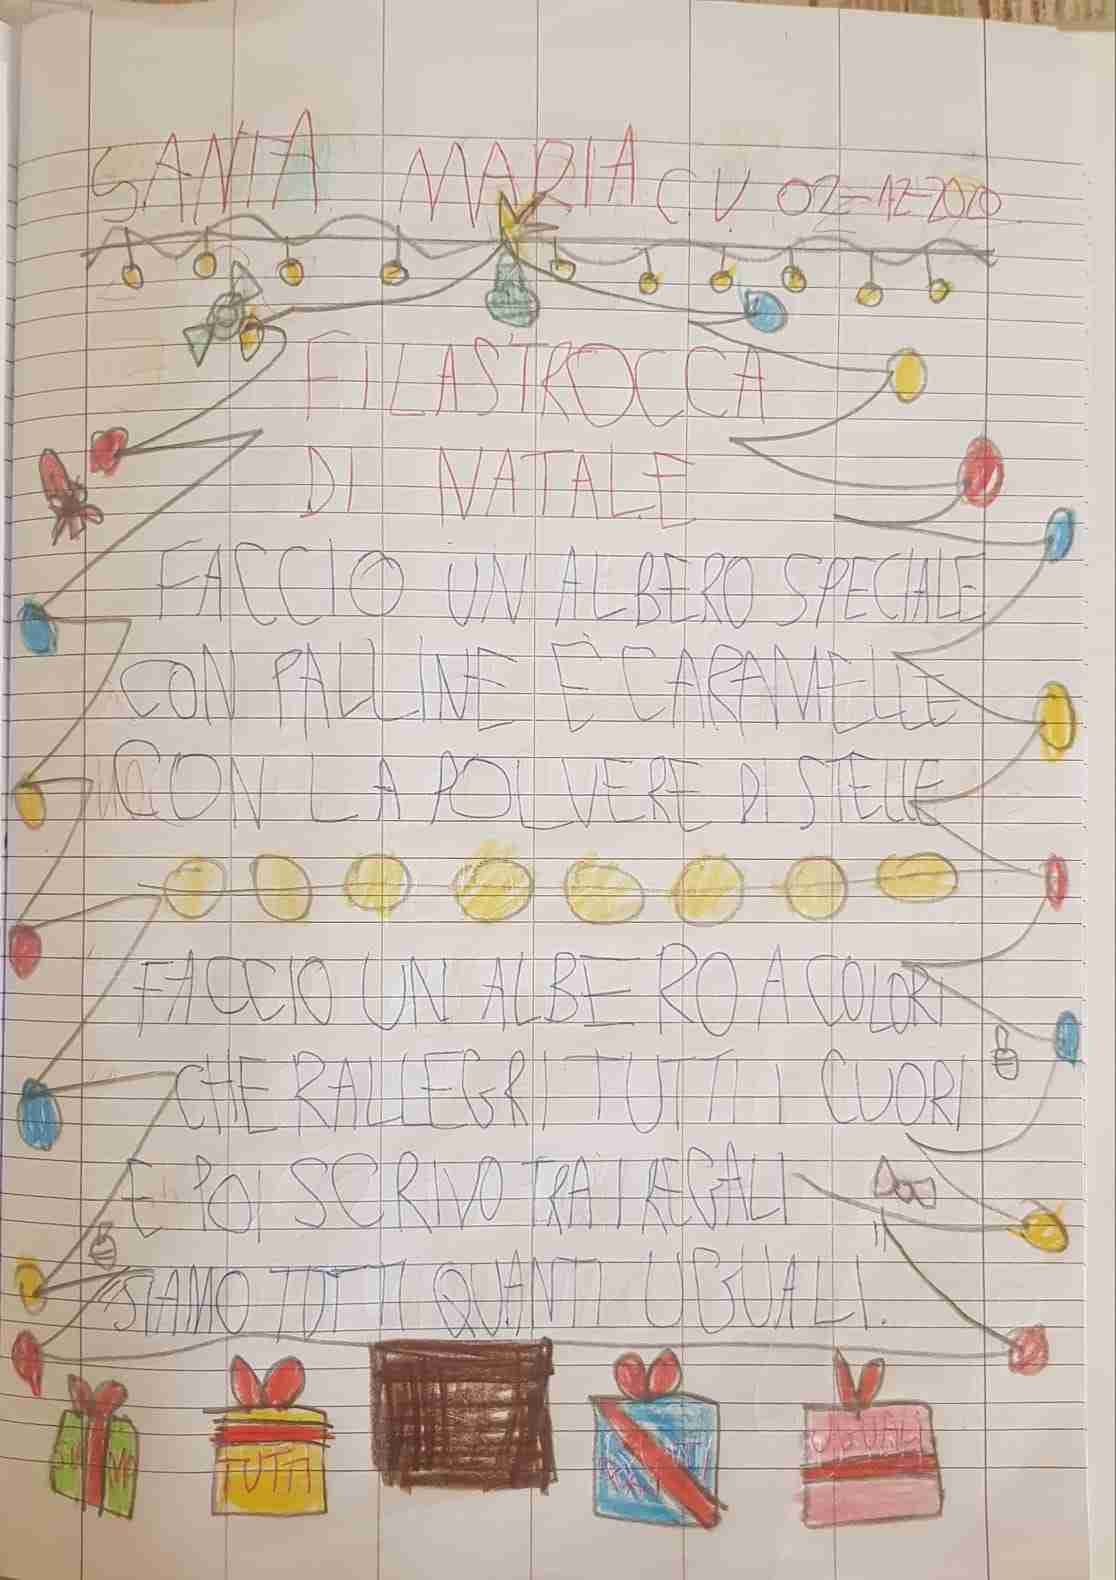 SANTA MARIA C.V. 02-12-2020
FILASTROCCA
DI NATALE
FACCIO UN ALBERO SPECIALE
CON PALLINE E CARAMELLE
CON LA POLVERE DI STELLE
FACCIO UN ALBERO A COLORI
CHE RALLEGRI TUTTI I CUORI
E POI SCRIVO TRA I REGALI
"SIAMO TUTTI QUANTI UGUALI".
TUTTI
UGUALI